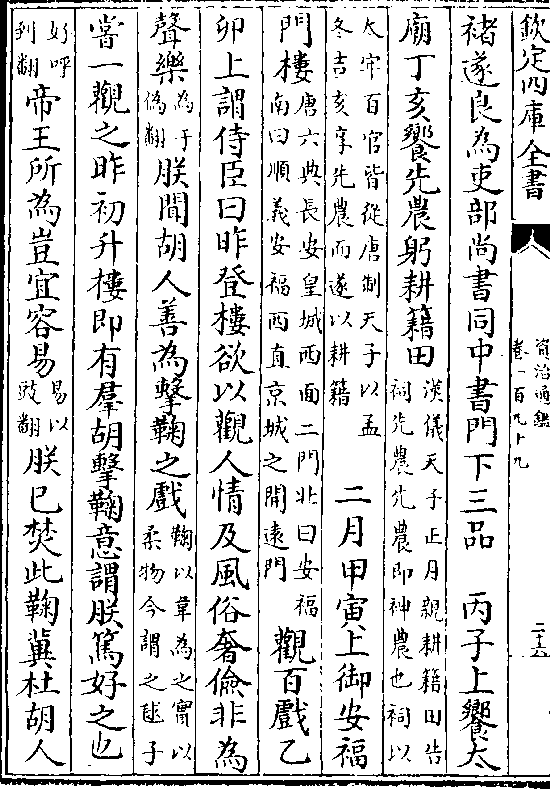 欽定四庫全書
資治通鑑
卷一百九十九
二十六
褚遂良為吏部尚書同中書門下三品　丙子上饗太
廟丁亥饗先農躬耕籍田漢儀天子正月親耕籍田告祠先農先農即神農也祠以
太牢百官皆從唐制天子以孟冬吉亥享先農而遂以耕籍　二月甲寅上御安福
門樓唐六典長安皇城西面二門北曰安福南曰順義安福西直京城之開遠門觀百戲乙
卯上謂侍臣曰昨登樓欲以觀人情及風俗奢儉非為
聲樂為于偽翻朕聞胡人善為擊鞠之戲鞠以韋為之實以柔物今謂之毬子
嘗一觀之昨初升樓即有羣胡擊鞠意謂朕篤好之也
好呼到翻帝王所為豈宜容易易以豉翻朕已焚此鞠冀杜胡人